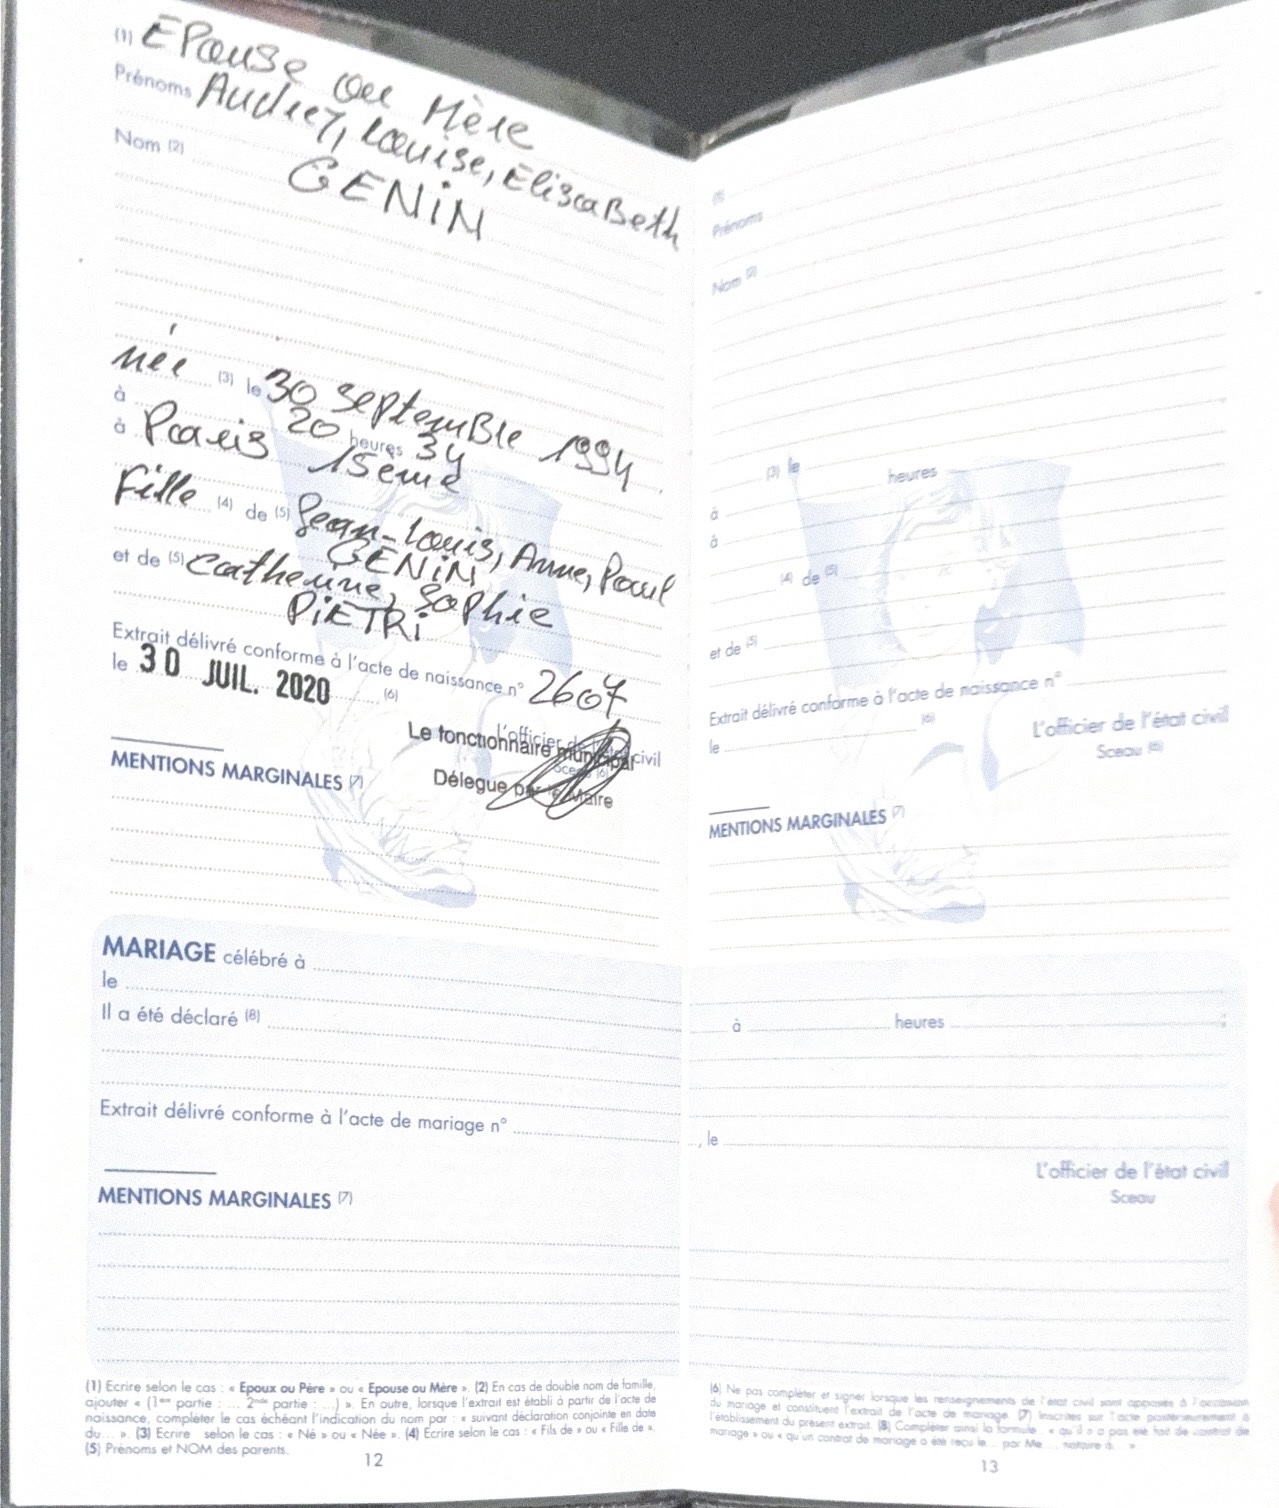 (1) Epouse ou Mère
Prénoms Audrey, Louise, Elisabeth
Nom (2) GENiN
née (3) le 30 septembre 1994
à 20 heures 34
à Paris 15ème
Fille (4) de (5) Jean-Louis, Anne, Paul
GENiN
et de (5) Catherine, Sophie
PiETRi
Extrait délivré conforme à l'acte de naissance n° 2607
le 30 JUIL. 2020 (6)
L'officier de l'état civil
Sceau (6)
Le fonctionnaire municipal
Délégué par le Maire
MENTIONS MARGINALES (7)
MARIAGE célébré à
le
Il a été déclaré (8)
Extrait délivré conforme à l'acte de mariage n°
MENTIONS MARGINALES (7)
(1) Ecrire selon le cas : « Epoux ou Père » ou « Epouse ou Mère ». (2) En cas de double nom de famille,
ajouter « (1ère partie : ... 2nde partie : ...) ». En outre, lorsque l'extrait est établi à partir de l'acte de
naissance, compléter le cas échéant l'indication du nom par : « suivant déclaration conjointe en date
du... ». (3) Ecrire selon le cas : « Né » ou « Née ». (4) Ecrire selon le cas : « Fils de » ou « Fille de ».
(5) Prénoms et NOM des parents.
12
(1)
Prénoms
Nom (2)
(3) le
à heures
à
(4) de (5)
et de (5)
Extrait délivré conforme à l'acte de naissance n°
le (6)
L'officier de l'état civil
Sceau (6)
MENTIONS MARGINALES (7)
à heures ;
, le
L'officier de l'état civil
Sceau
(6) Ne pas compléter et signer lorsque les renseignements de l'état civil sont apposés à l'occasion
du mariage et constituent l'extrait de l'acte de mariage. (7) Inscrites sur l'acte postérieurement à
l'établissement du présent extrait. (8) Compléter ainsi la formule : « qu'il n'a pas été fait de contrat de
mariage » ou « qu'un contrat de mariage a été reçu le... par Me... notaire à... »
13